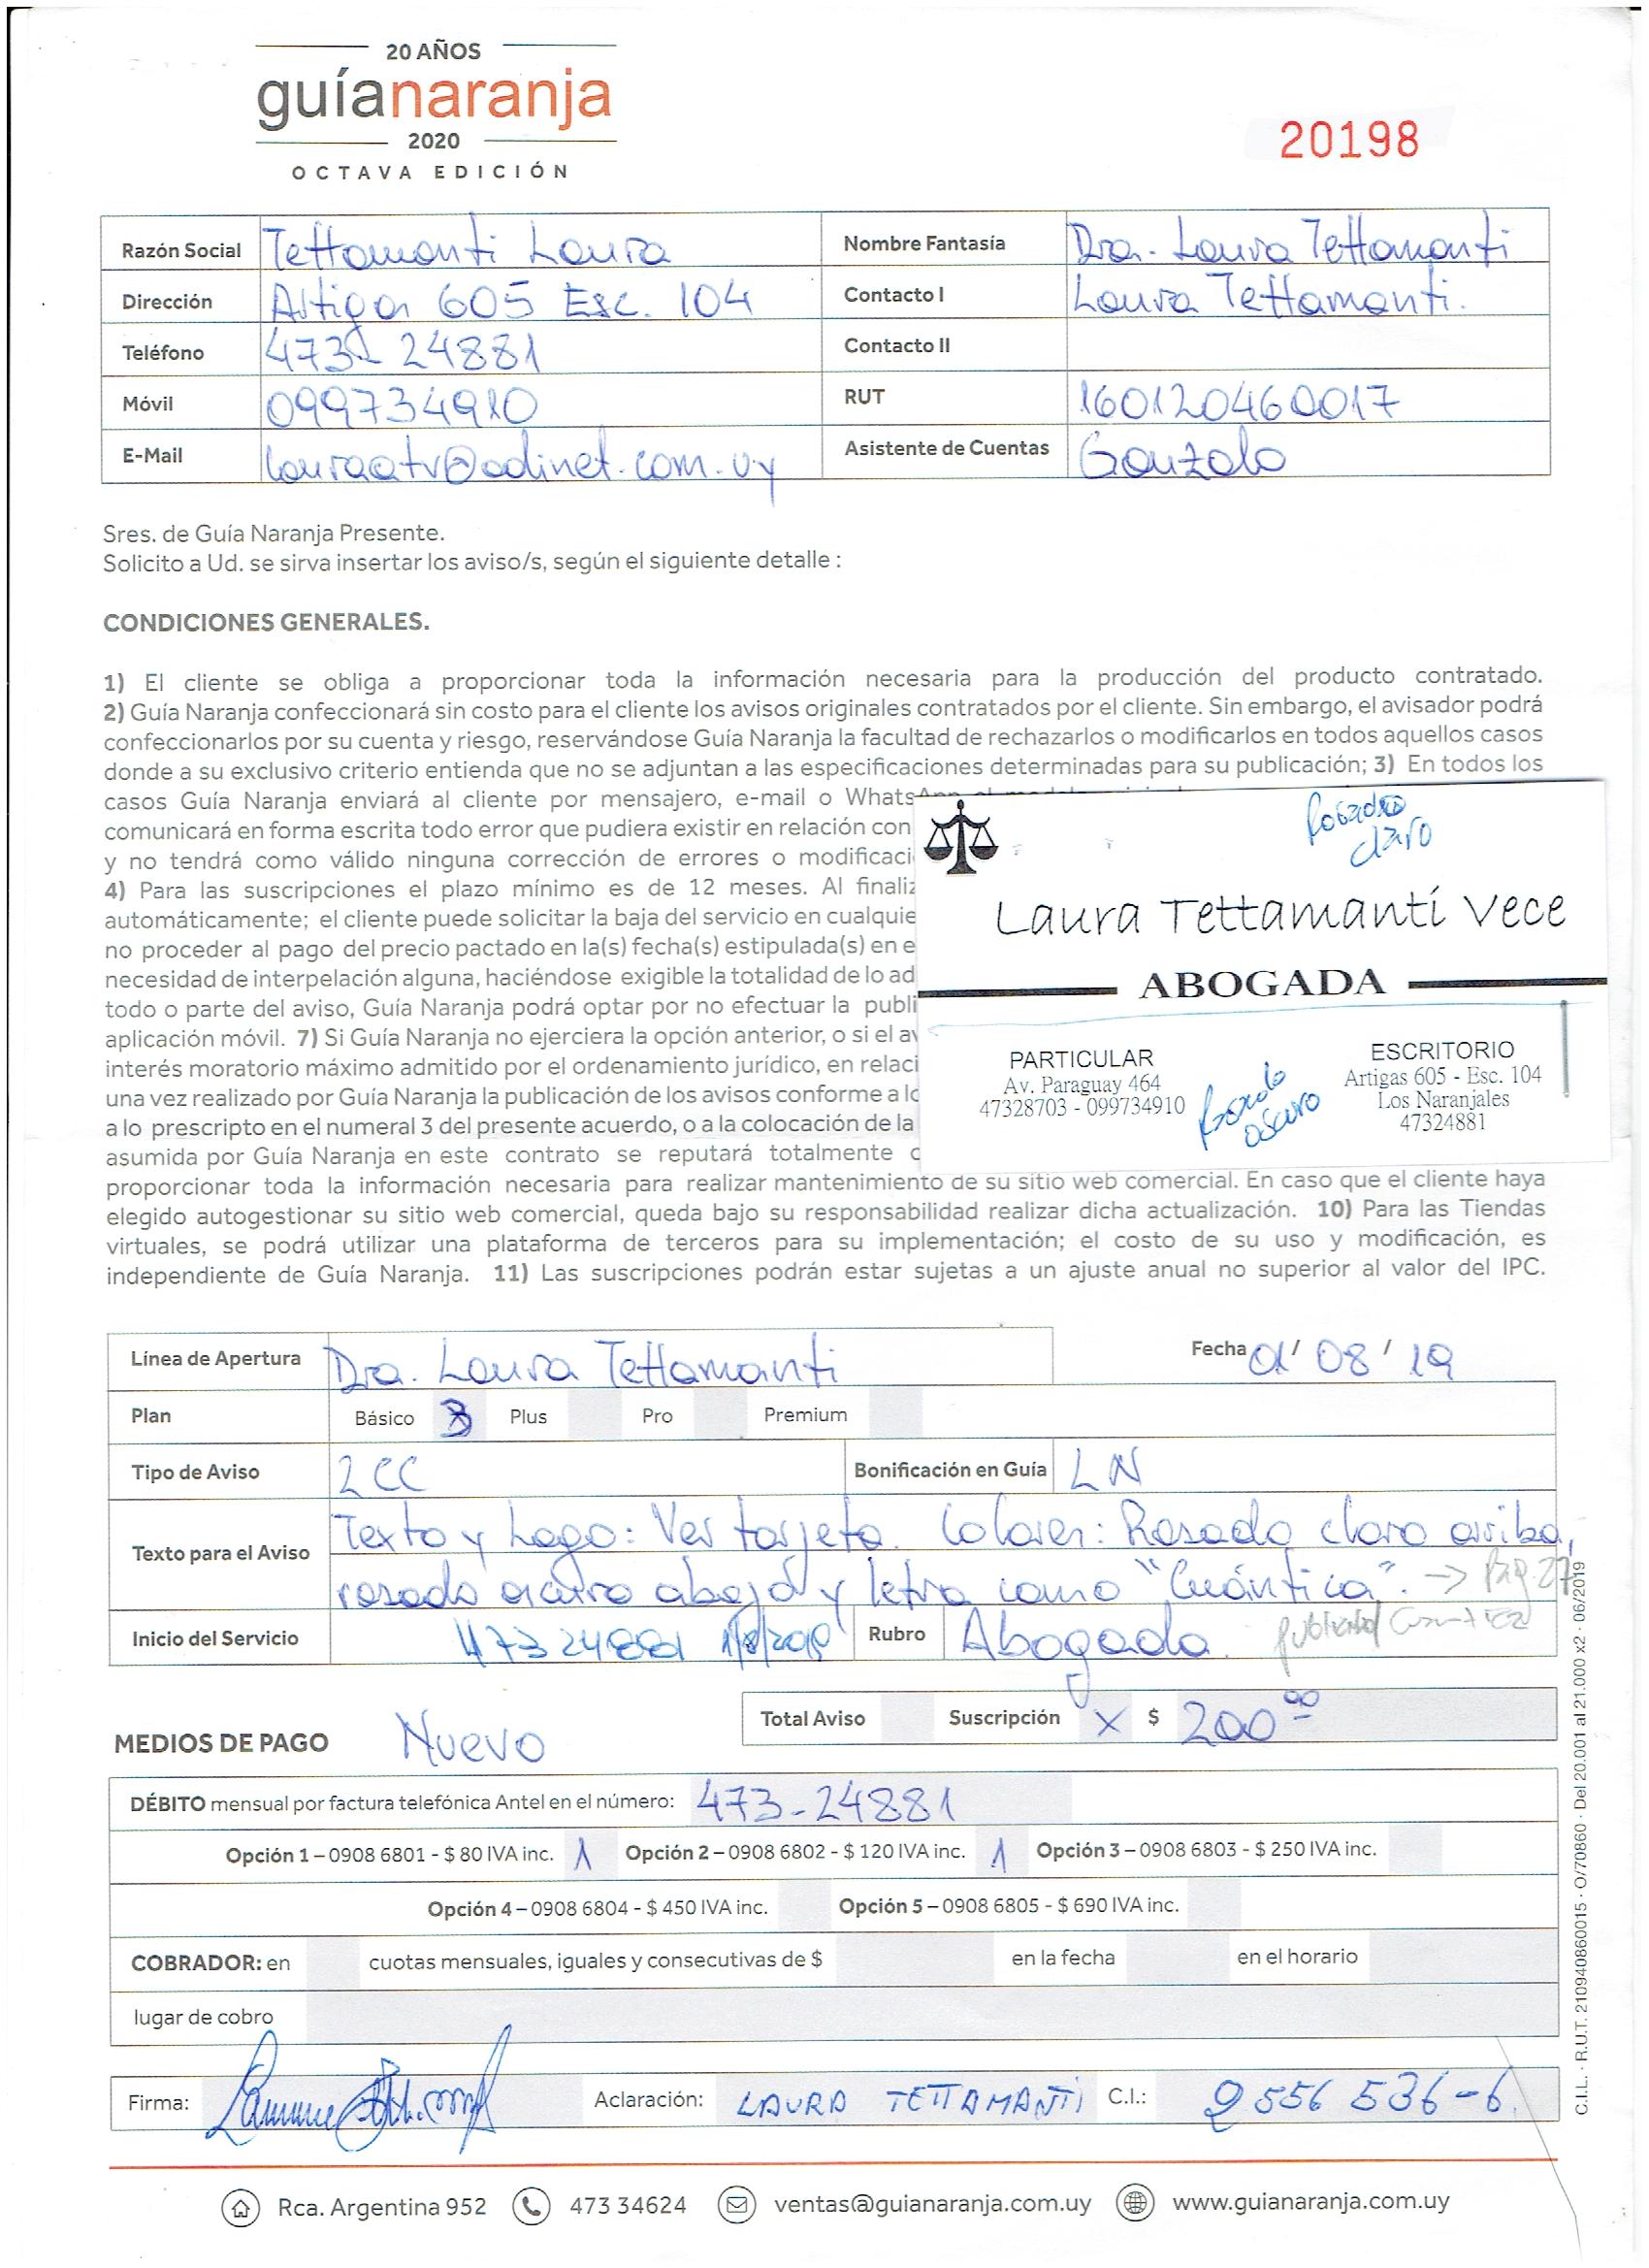 20 AÑOS
guíanaranja
2020
OCTAVA EDICIÓN
20198
Razón Social Tettamanti Laura Nombre Fantasía Dra. Laura Tettamanti
Dirección Artigas 605 Esc. 104 Contacto I Laura Tettamanti.
Teléfono 473-24881 Contacto II
Móvil 099734910 RUT 160120460017
E-Mail lauraatv@adinet.com.uy Asistente de Cuentas Gonzalo
Sres. de Guía Naranja Presente.
Solicito a Ud. se sirva insertar los aviso/s, según el siguiente detalle :
CONDICIONES GENERALES.
1) El cliente se obliga a proporcionar toda la información necesaria para la producción del producto contratado.
2) Guía Naranja confeccionará sin costo para el cliente los avisos originales contratados por el cliente. Sin embargo, el avisador podrá
confeccionarlos por su cuenta y riesgo, reservándose Guía Naranja la facultad de rechazarlos o modificarlos en todos aquellos casos
donde a su exclusivo criterio entienda que no se adjuntan a las especificaciones determinadas para su publicación; 3) En todos los
casos Guía Naranja enviará al cliente por mensajero, e-mail o WhatsApp
comunicará en forma escrita todo error que pudiera existir en relación con
y no tendrá como válido ninguna corrección de errores o modificaci
4) Para las suscripciones el plazo mínimo es de 12 meses. Al finaliz
automáticamente; el cliente puede solicitar la baja del servicio en cualquie
no proceder al pago del precio pactado en la(s) fecha(s) estipulada(s) en e
necesidad de interpelación alguna, haciéndose exigible la totalidad de lo ad
todo o parte del aviso, Guía Naranja podrá optar por no efectuar la publi
aplicación móvil. 7) Si Guía Naranja no ejerciera la opción anterior, o si el av
interés moratorio máximo admitido por el ordenamiento jurídico, en relaci
una vez realizado por Guía Naranja la publicación de los avisos conforme a lo
a lo prescripto en el numeral 3 del presente acuerdo, o a la colocación de la
asumida por Guía Naranja en este contrato se reputará totalmente c
proporcionar toda la información necesaria para realizar mantenimiento de su sitio web comercial. En caso que el cliente haya
elegido autogestionar su sitio web comercial, queda bajo su responsabilidad realizar dicha actualización. 10) Para las Tiendas
virtuales, se podrá utilizar una plataforma de terceros para su implementación; el costo de su uso y modificación, es
independiente de Guía Naranja. 11) Las suscripciones podrán estar sujetas a un ajuste anual no superior al valor del IPC.
Rosado
claro
Laura Tettamanti Vece
ABOGADA
PARTICULAR
Av. Paraguay 464
47328703 - 099734910
Rosado
oscuro
ESCRITORIO
Artigas 605 - Esc. 104
Los Naranjales
47324881
Línea de Apertura Dra. Laura Tettamanti Fecha 01/ 08 / 19
Plan Básico Plus Pro Premium
Tipo de Aviso 2 CC Bonificación en Guía LN
Texto para el Aviso Texto y Logo: Ver tarjeta. Colores: Rosado claro arriba,
rosado oscuro abajo y letra como "Cuántica". → Pag. 27
Inicio del Servicio 47324881 Rubro Abogada. publicidad Cuántica
Total Aviso Suscripción X $ 200⁰⁰
MEDIOS DE PAGO Nuevo
DÉBITO mensual por factura telefónica Antel en el número: 473-24881
Opción 1 – 0908 6801 - $ 80 IVA inc. 1 Opción 2 – 0908 6802 - $ 120 IVA inc. 1 Opción 3 – 0908 6803 - $ 250 IVA inc.
Opción 4 – 0908 6804 - $ 450 IVA inc. Opción 5 – 0908 6805 - $ 690 IVA inc.
COBRADOR: en cuotas mensuales, iguales y consecutivas de $ en la fecha en el horario
lugar de cobro
Firma: Aclaración: LAURA TETTAMANTI C.I.: 2 556 536-6
Rca. Argentina 952 473 34624 ventas@guianaranja.com.uy www.guianaranja.com.uy
C.I.L. · R.U.T. 210940860015 · O/70860 · Del 20.001 al 21.000 x2 · 06/2019